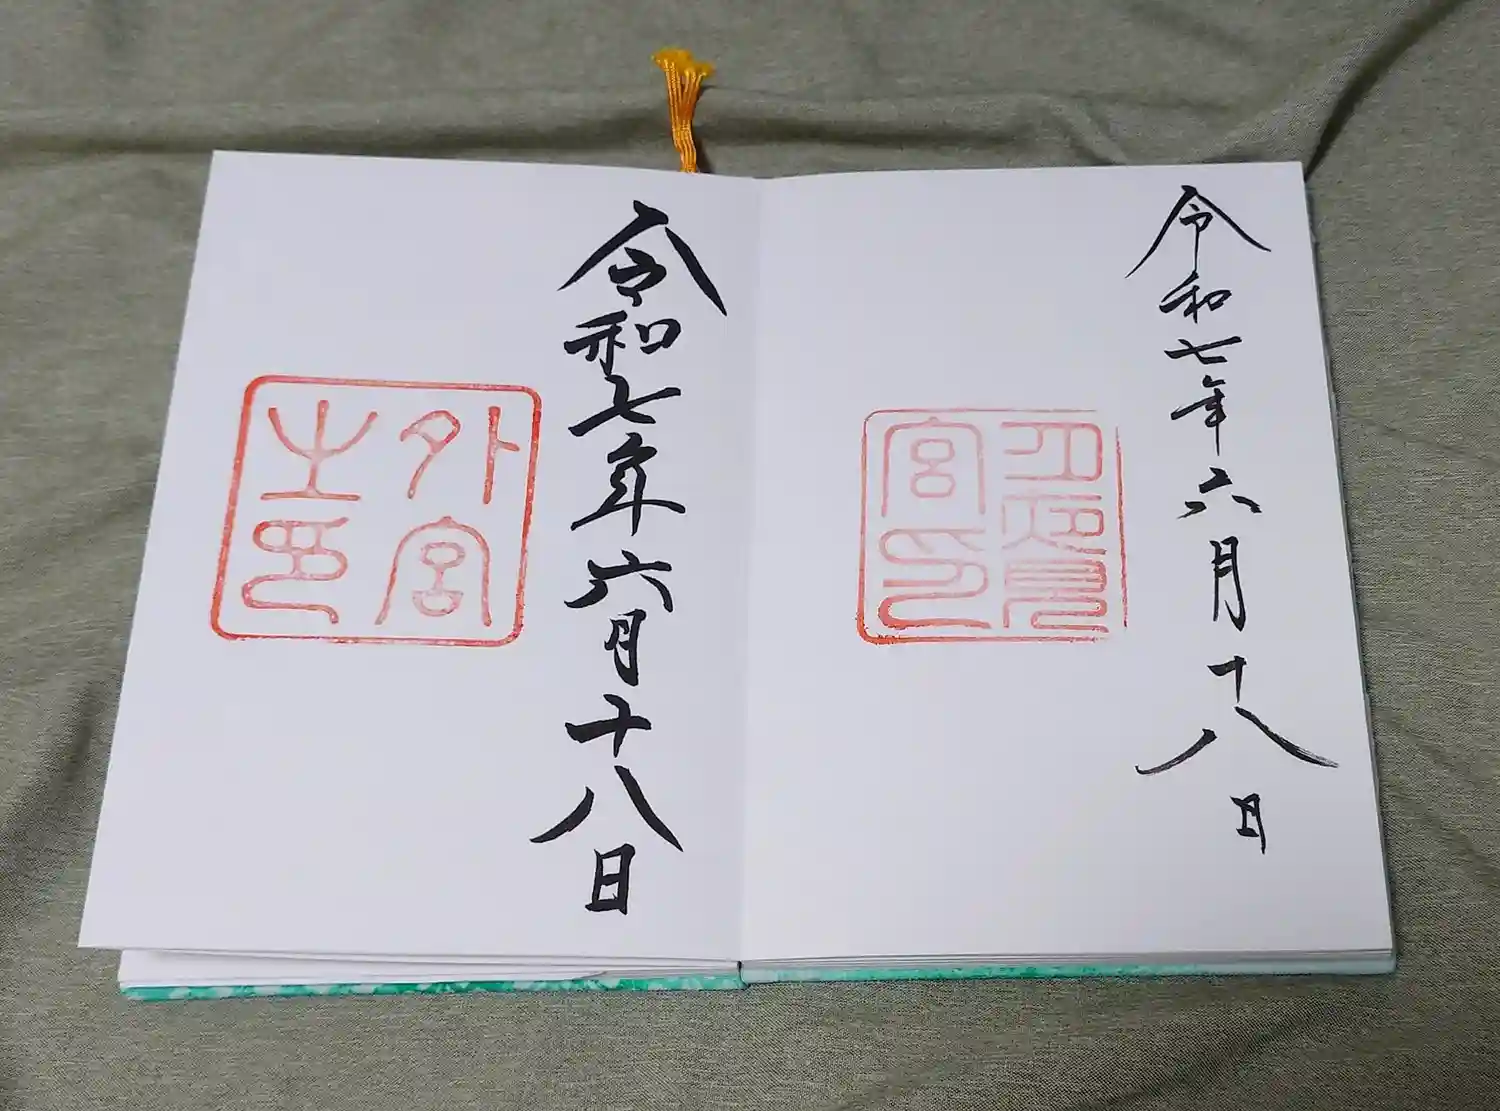 令和七年六月十八日
月夜見
宮印
令和七年六月十八日
外宮
之印